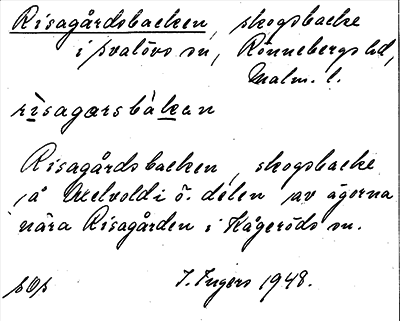 Risagårdsbacken, skogsbacke
i Svalövs sn, Rönnebergs hd,
Malm. l.
risagarsbakan
Risagårdsbacken, skogsbacke
på Axelvold i ö. delen av ägorna
nära Risagården i Kågeröds sn.
I. Ingers 1948.